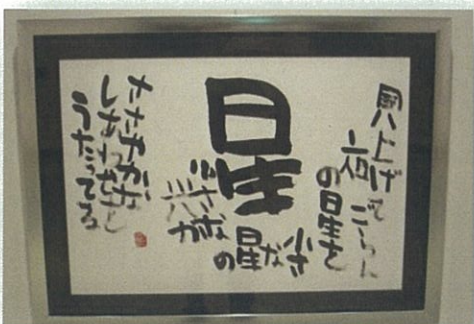 見上げてごらん
夜の星を
星
小さな星の
小さな
光が
ささやかな
しあわせを
うたってる